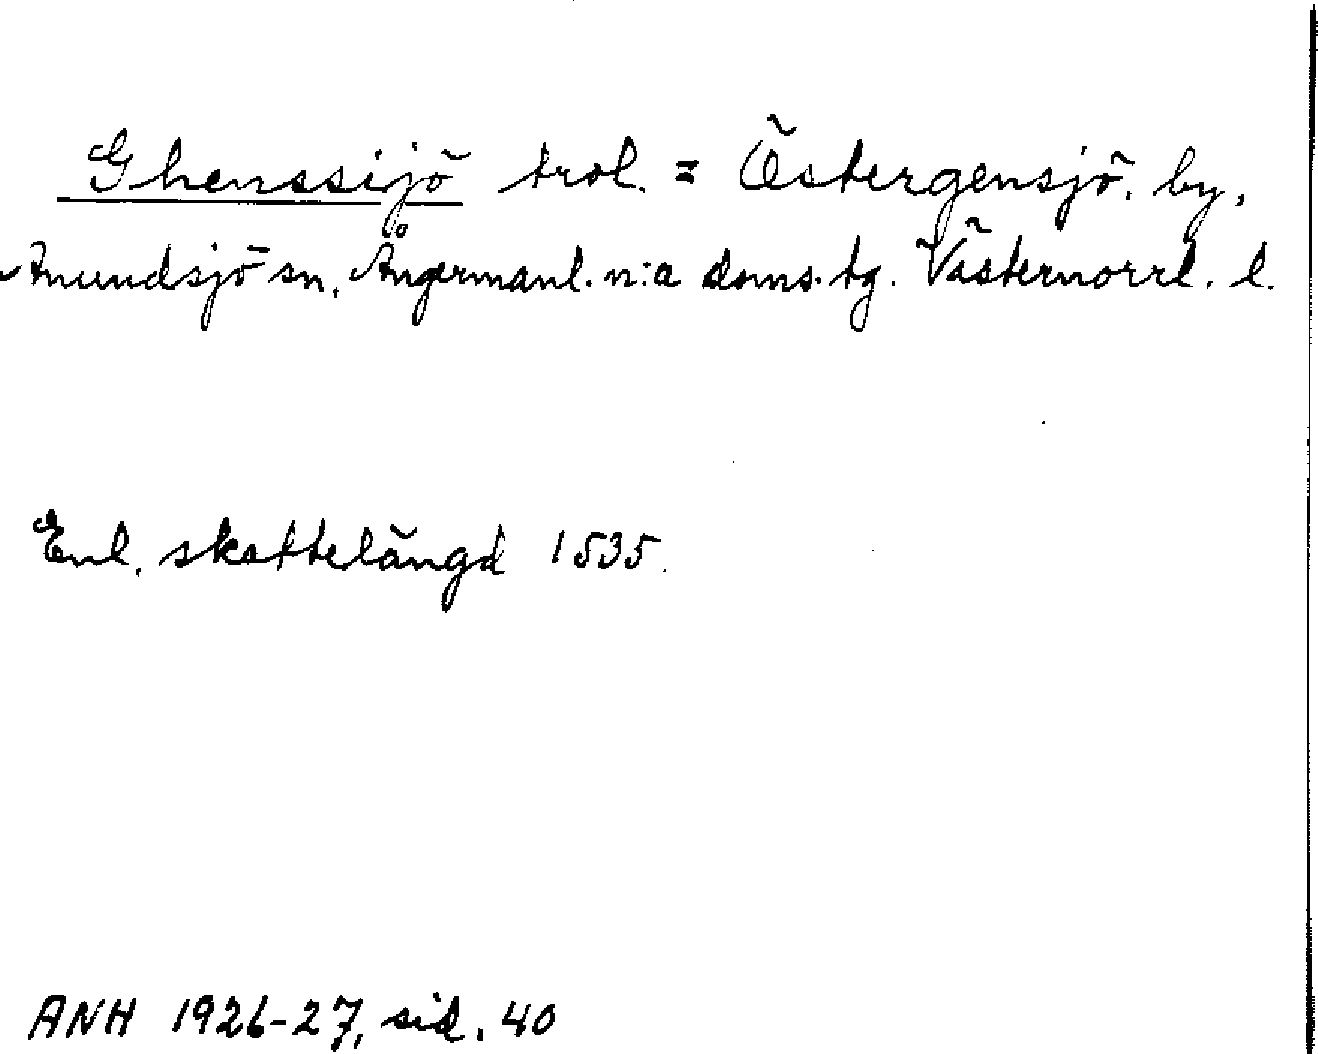 Ghenssijö trol. = Östergensjö, by,
Anundsjö sn, Ångermanl. n:a doms. tg. Västernorrl. l.
Enl. skattelängd 1535.
ANH 1926-27, sid. 40